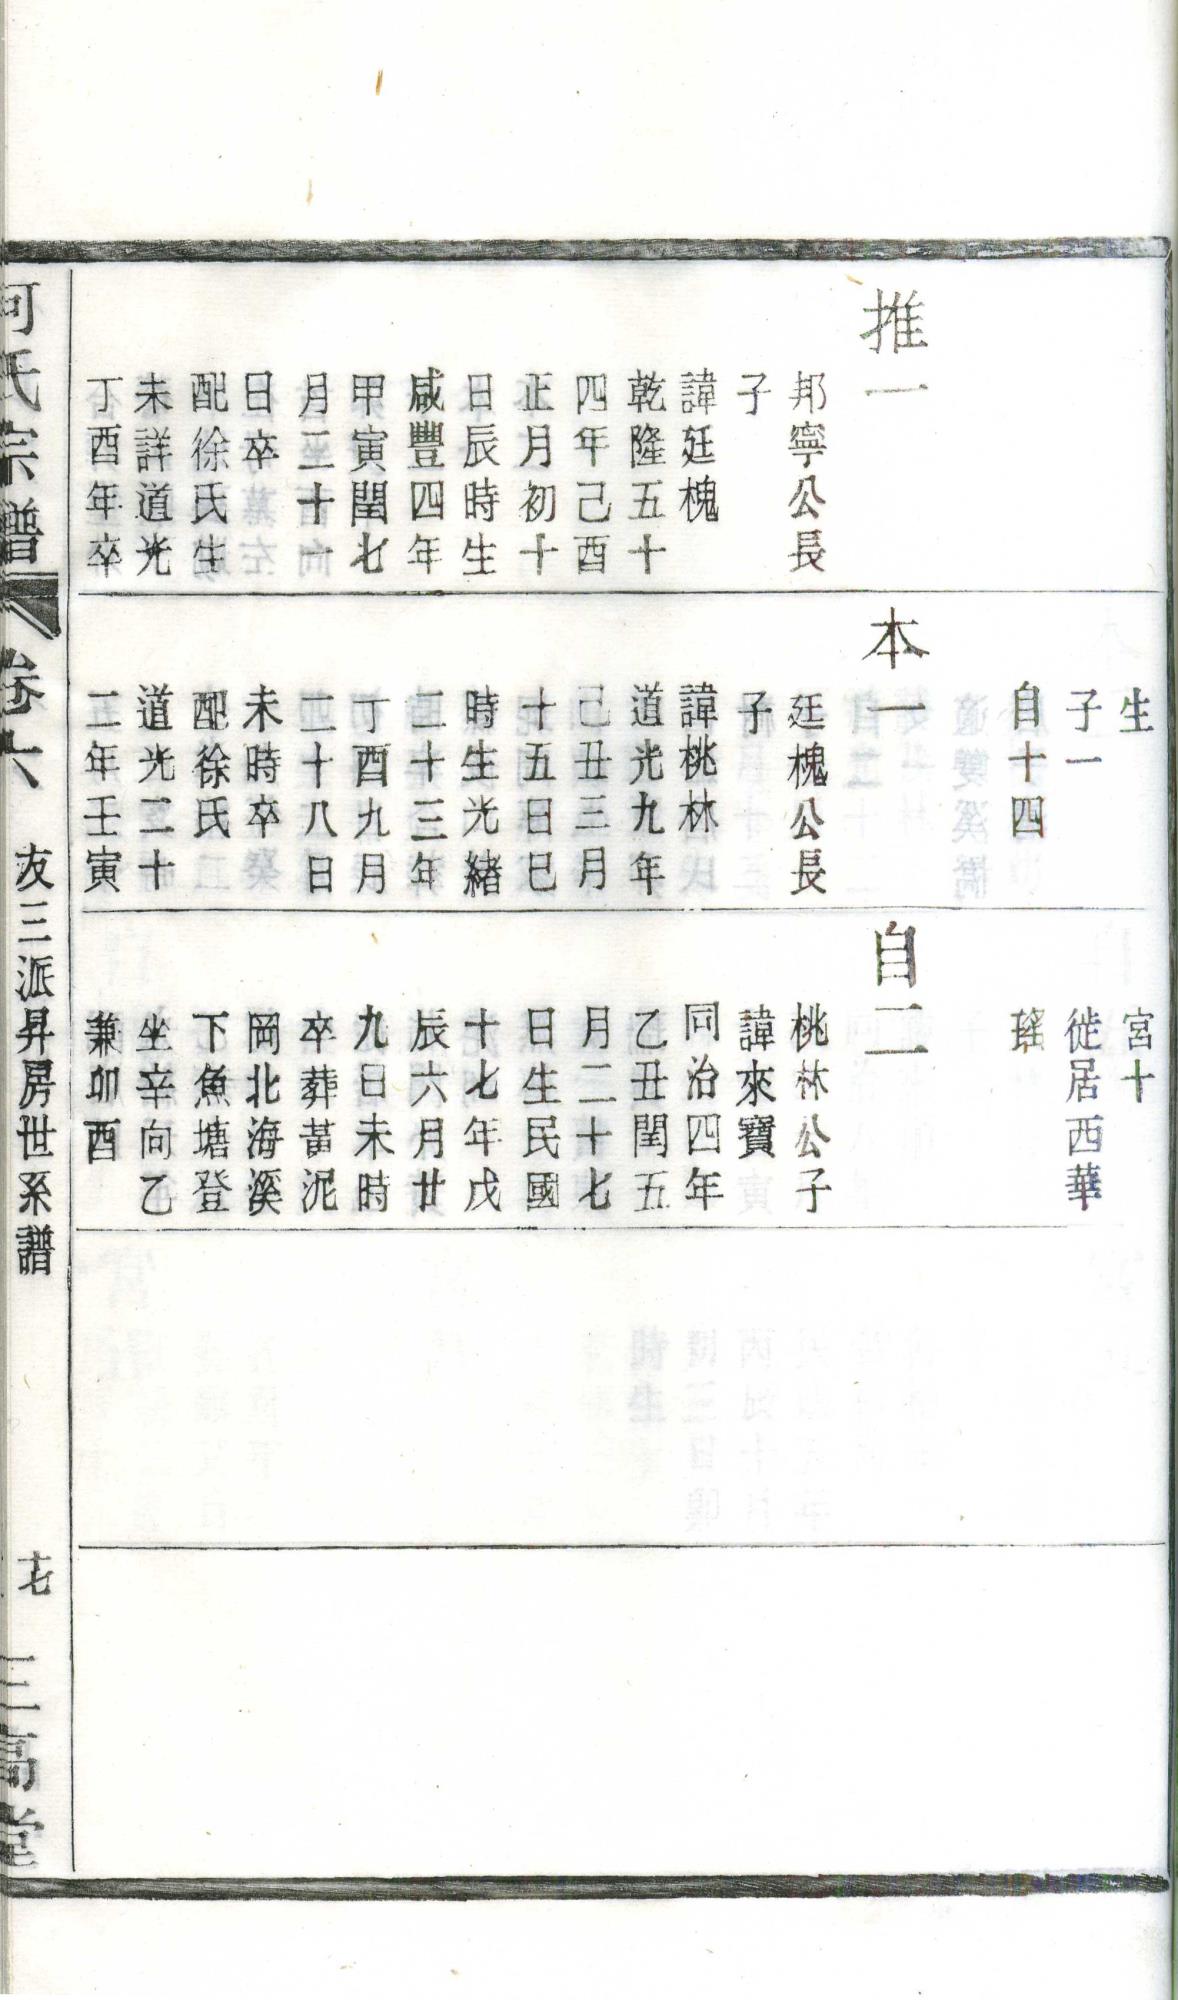 推一
邦寧公長
子
諱廷槐
乾隆五十
四年己酉
正月初十
日辰時生
咸豐四年
甲寅閏七
月三十一
日卒
配徐氏生
未詳道光
丁酉年卒
生
子一
自十四
本一
廷槐公長
子
諱桃林
道光九年
己丑三月
十五日巳
時生光緒
二十三年
丁酉九月
二十八日
未時卒
配徐氏
道光二十
二年壬寅
宮十
徙居西華
瑤
自二
桃林公子
諱來寶
同治四年
乙丑閏五
月二十七
日生民國
十七年戊
辰六月廿
九日未時
卒葬黃泥
岡北海溪
下魚塘登
坐辛向乙
兼卯酉
何氏宗譜
卷六
友三派昇房世系譜
十七
三高堂